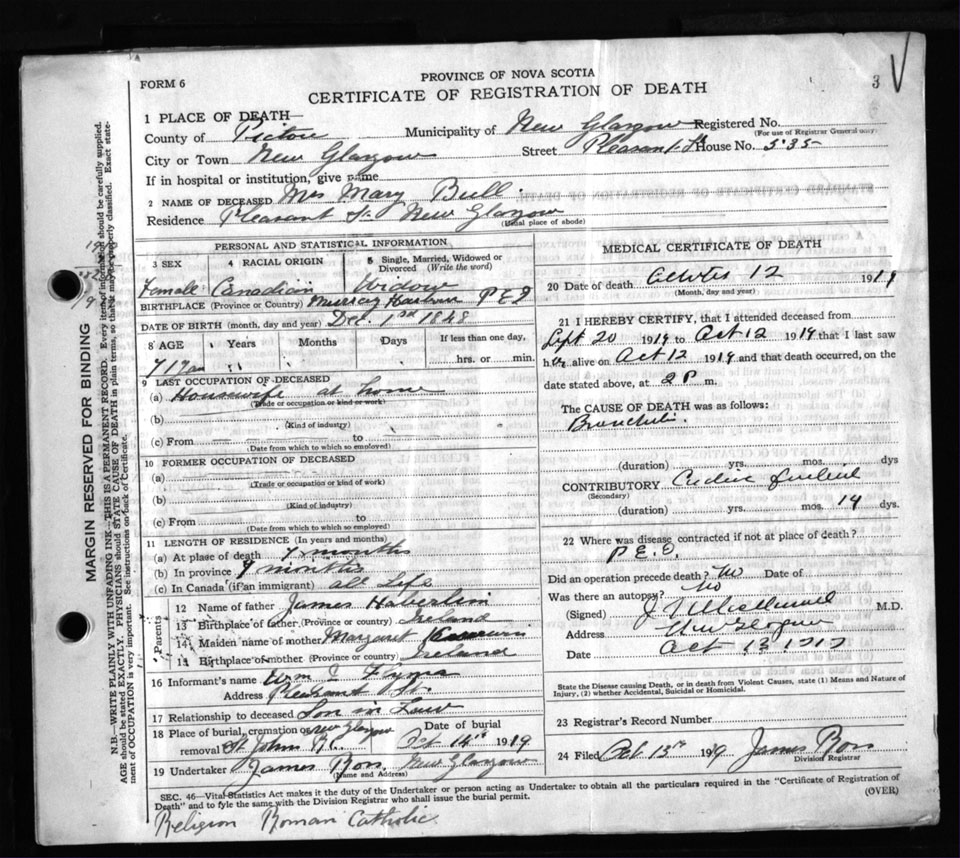 PROVINCE OF NOVA SCOTIA
FORM 6
CERTIFICATE OF REGISTRATION OF DEATH
3
1 PLACE OF DEATH
County of Pictou Municipality of New Glasgow Registered No.
(For use of Registrar General only)
City or Town New Glasgow Street Pleasant St House No. 535
If in hospital or institution, give name
2 NAME OF DECEASED Mrs Mary Bull
Residence Pleasant St. New Glasgow
(Usual place of abode)
PERSONAL AND STATISTICAL INFORMATION
3 SEX 4 RACIAL ORIGIN 5 Single, Married, Widowed or Divorced (Write the word)
Female Canadian Widow
BIRTHPLACE (Province or Country) Murray Harbour P E I
DATE OF BIRTH (month, day and year) Dec. 1st 1848
8 AGE Years Months Days If less than one day,
hrs. or min.
71
9 LAST OCCUPATION OF DECEASED
(a) Housewife at home
(Trade or occupation or kind of work)
(b)
(Kind of industry)
(c) From to
(Date from which to which so employed)
10 FORMER OCCUPATION OF DECEASED
(a)
(Trade or occupation or kind of work)
(b)
(Kind of industry)
(c) From to
(Date from which to which so employed)
11 LENGTH OF RESIDENCE (In years and months)
(a) At place of death months
(b) In province months
(c) In Canada (if an immigrant) all Life
Parents
12 Name of father James Haberlin
13 Birthplace of father (Province or country) Ireland
14 Maiden name of mother Margaret
15 Birthplace of mother (Province or country) Ireland
16 Informant's name Wm
Address Pleasant St.
17 Relationship to deceased Son in Law
18 Place of burial, cremation or removal New Glasgow St Johns R.C. Date of burial Oct 14th 1919
19 Undertaker James Ross. New Glasgow
(Name and Address)
MEDICAL CERTIFICATE OF DEATH
20 Date of death October 12 1919
(Month, day and year)
21 I HEREBY CERTIFY, that I attended deceased from
Sept 20 1919 to Oct 12 1919 that I last saw
her alive on Oct 12 1919 and that death occurred, on the
date stated above, at 2 P m.
The CAUSE OF DEATH was as follows:
Bronchitis.
(duration) yrs. mos. dys
CONTRIBUTORY
(Secondary)
(duration) yrs. mos. 14 dys.
22 Where was disease contracted if not at place of death?
P.E.I.
Did an operation precede death? No Date of
Was there an autopsy? No
(Signed) M.D.
Address New Glasgow
Date Oct 13 1919
State the Disease causing Death, or in death from Violent Causes, state (1) Means and Nature of Injury, (2) whether Accidental, Suicidal or Homicidal.
23 Registrar's Record Number
24 Filed Oct 13th 1919 James Ross
Division Registrar
SEC. 46—Vital Statistics Act makes it the duty of the Undertaker or person acting as Undertaker to obtain all the particulars required in the "Certificate of Registration of
Death" and to fyle the same with the Division Registrar who shall issue the burial permit.
(OVER)
Religion Roman Catholic
MARGIN RESERVED FOR BINDING
N.B.—WRITE PLAINLY WITH UNFADING INK—THIS IS A PERMANENT RECORD. Every item of information should be carefully supplied.
AGE should be stated EXACTLY. PHYSICIANS should STATE CAUSE OF DEATH in plain terms, so that it may be properly classified. Exact state-
ment of OCCUPATION is very important. See instructions on back of Certificate.